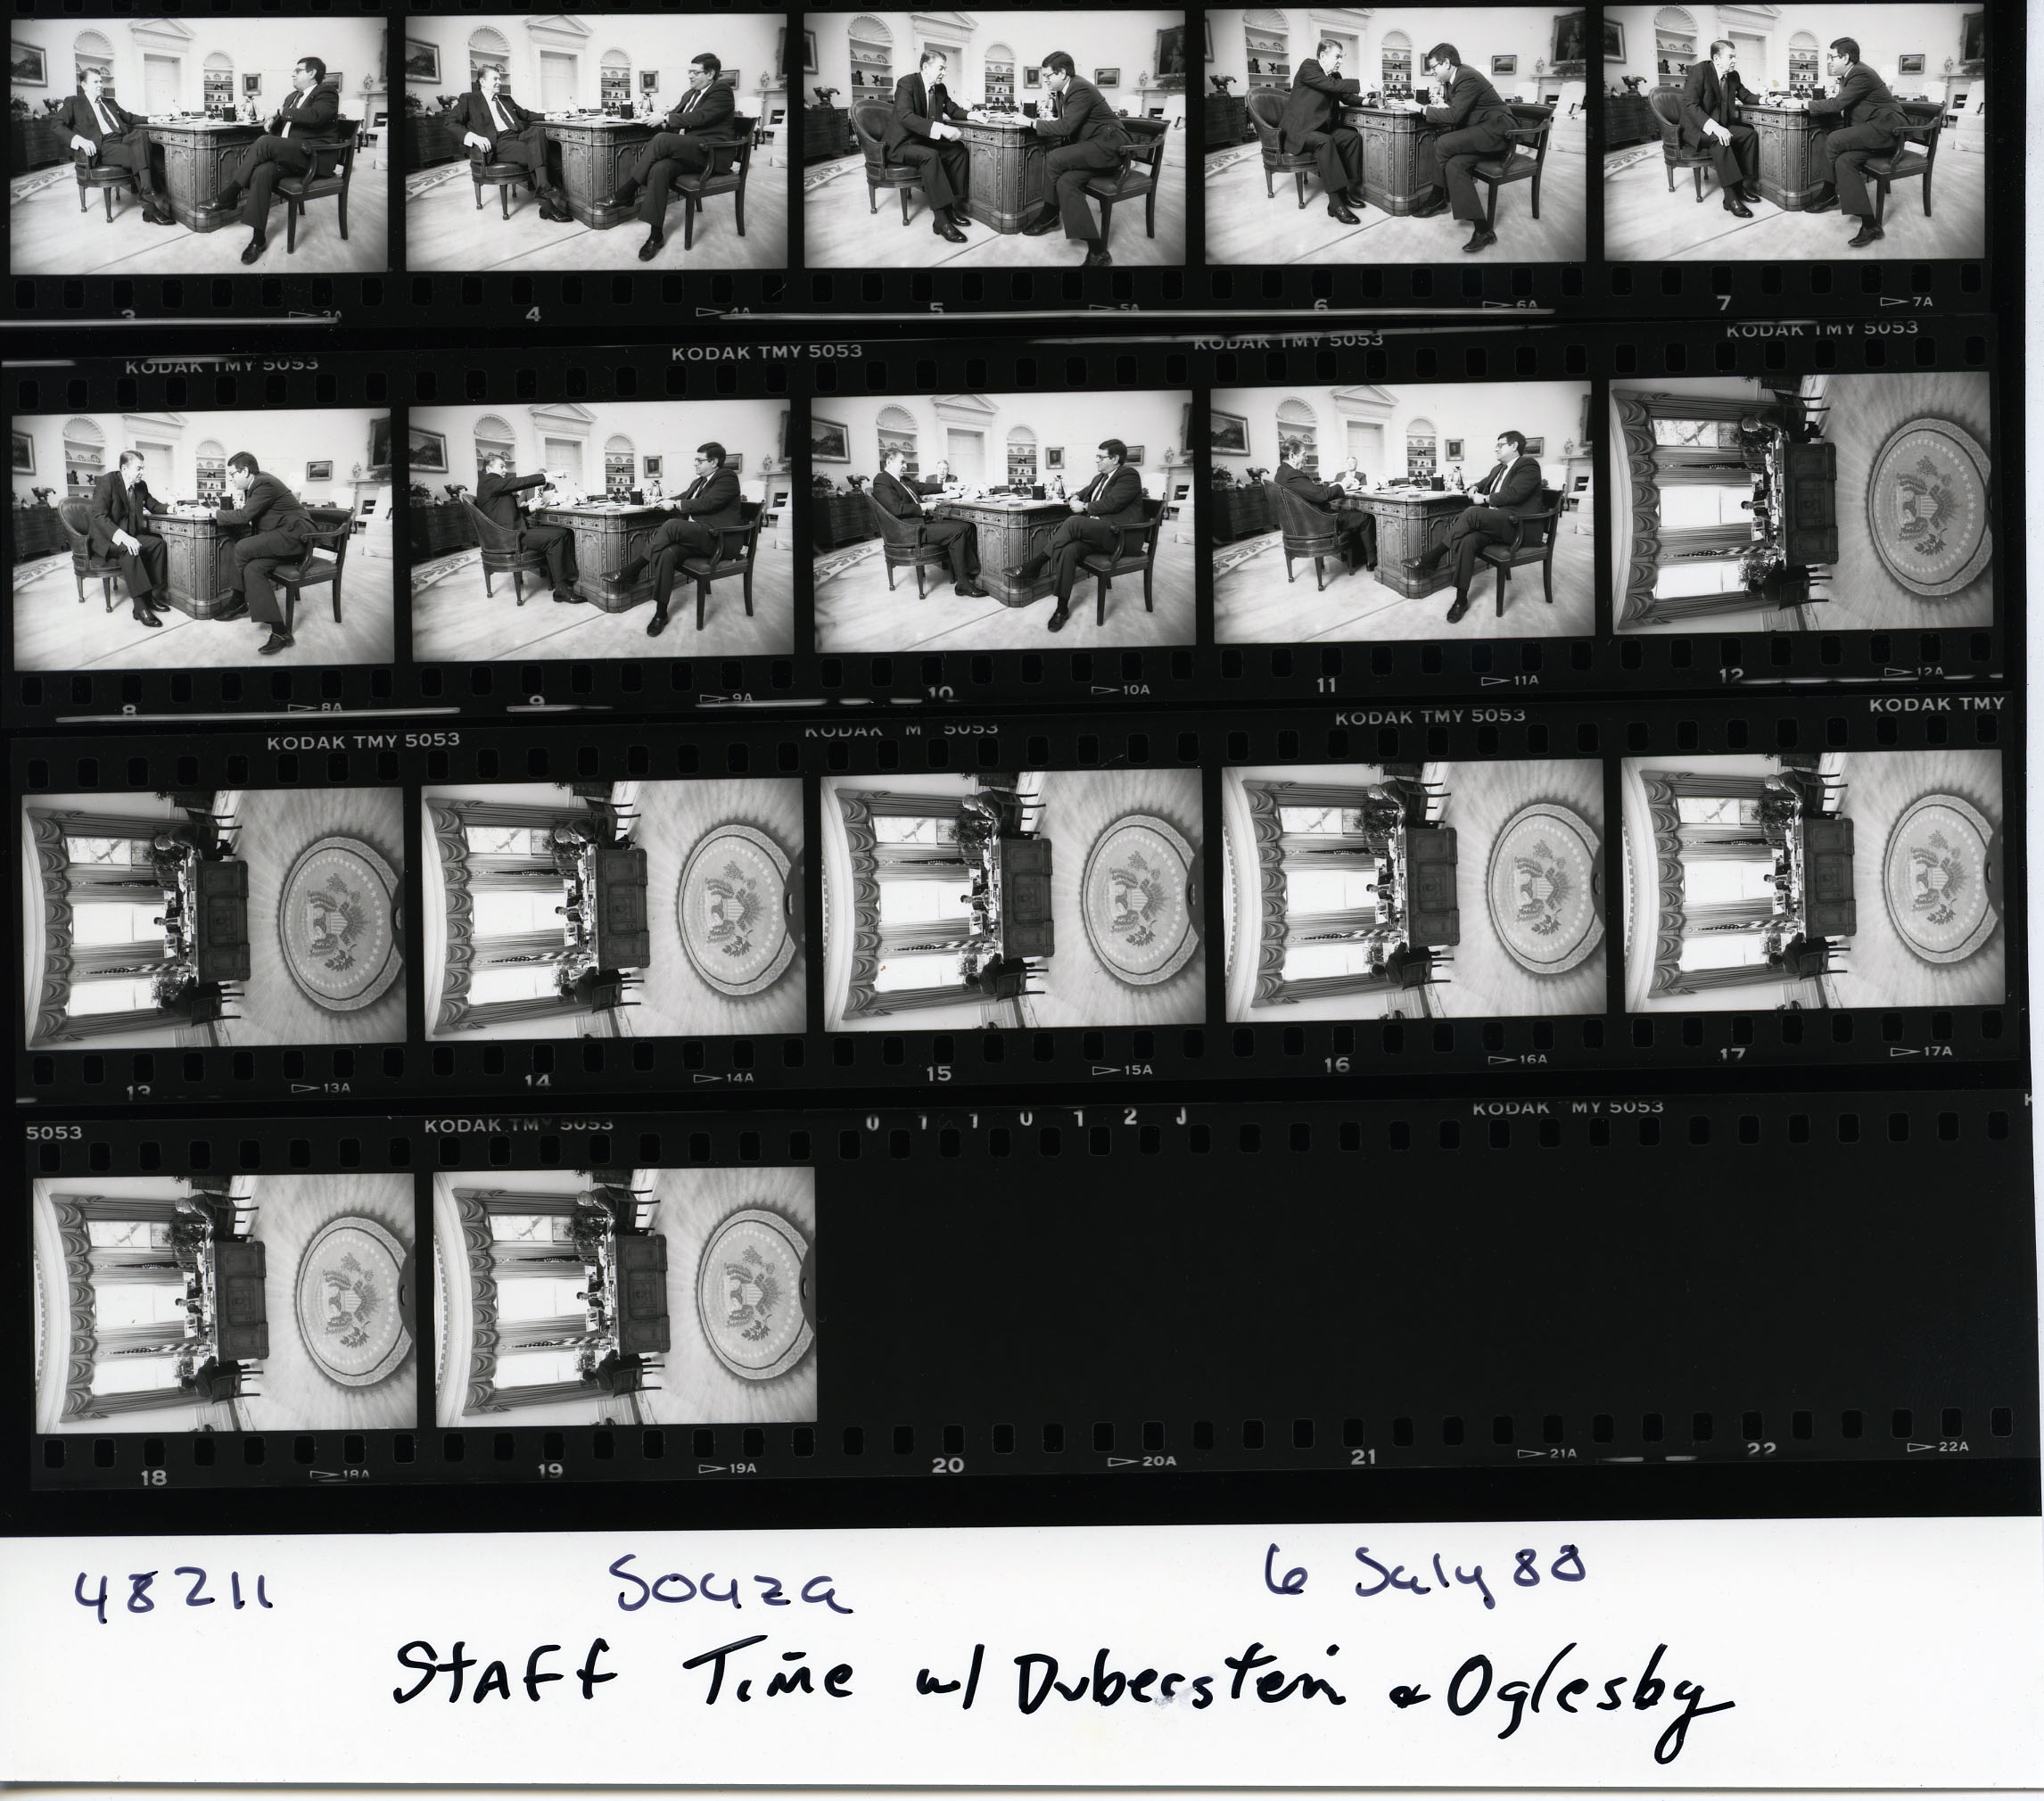 3 3A 4 4A 5 5A 6 6A 7 7A
KODAK TMY 5053 KODAK TMY 5053 KODAK TMY 5053 KODAK TMY 5053
8 8A 9 9A 10 10A 11 11A 12 12A
KODAK TMY 5053 KODAK M 5053 KODAK TMY 5053 KODAK TMY
13 13A 14 14A 15 15A 16 16A 17 17A
5053 KODAK TMY 5053 0 1 1 0 1 2 J KODAK MY 5053 K
18 18A 19 19A 20 20A 21 21A 22 22A
48211 Souza 6 July 88
Staff Time w/ Duberstein & Oglesby